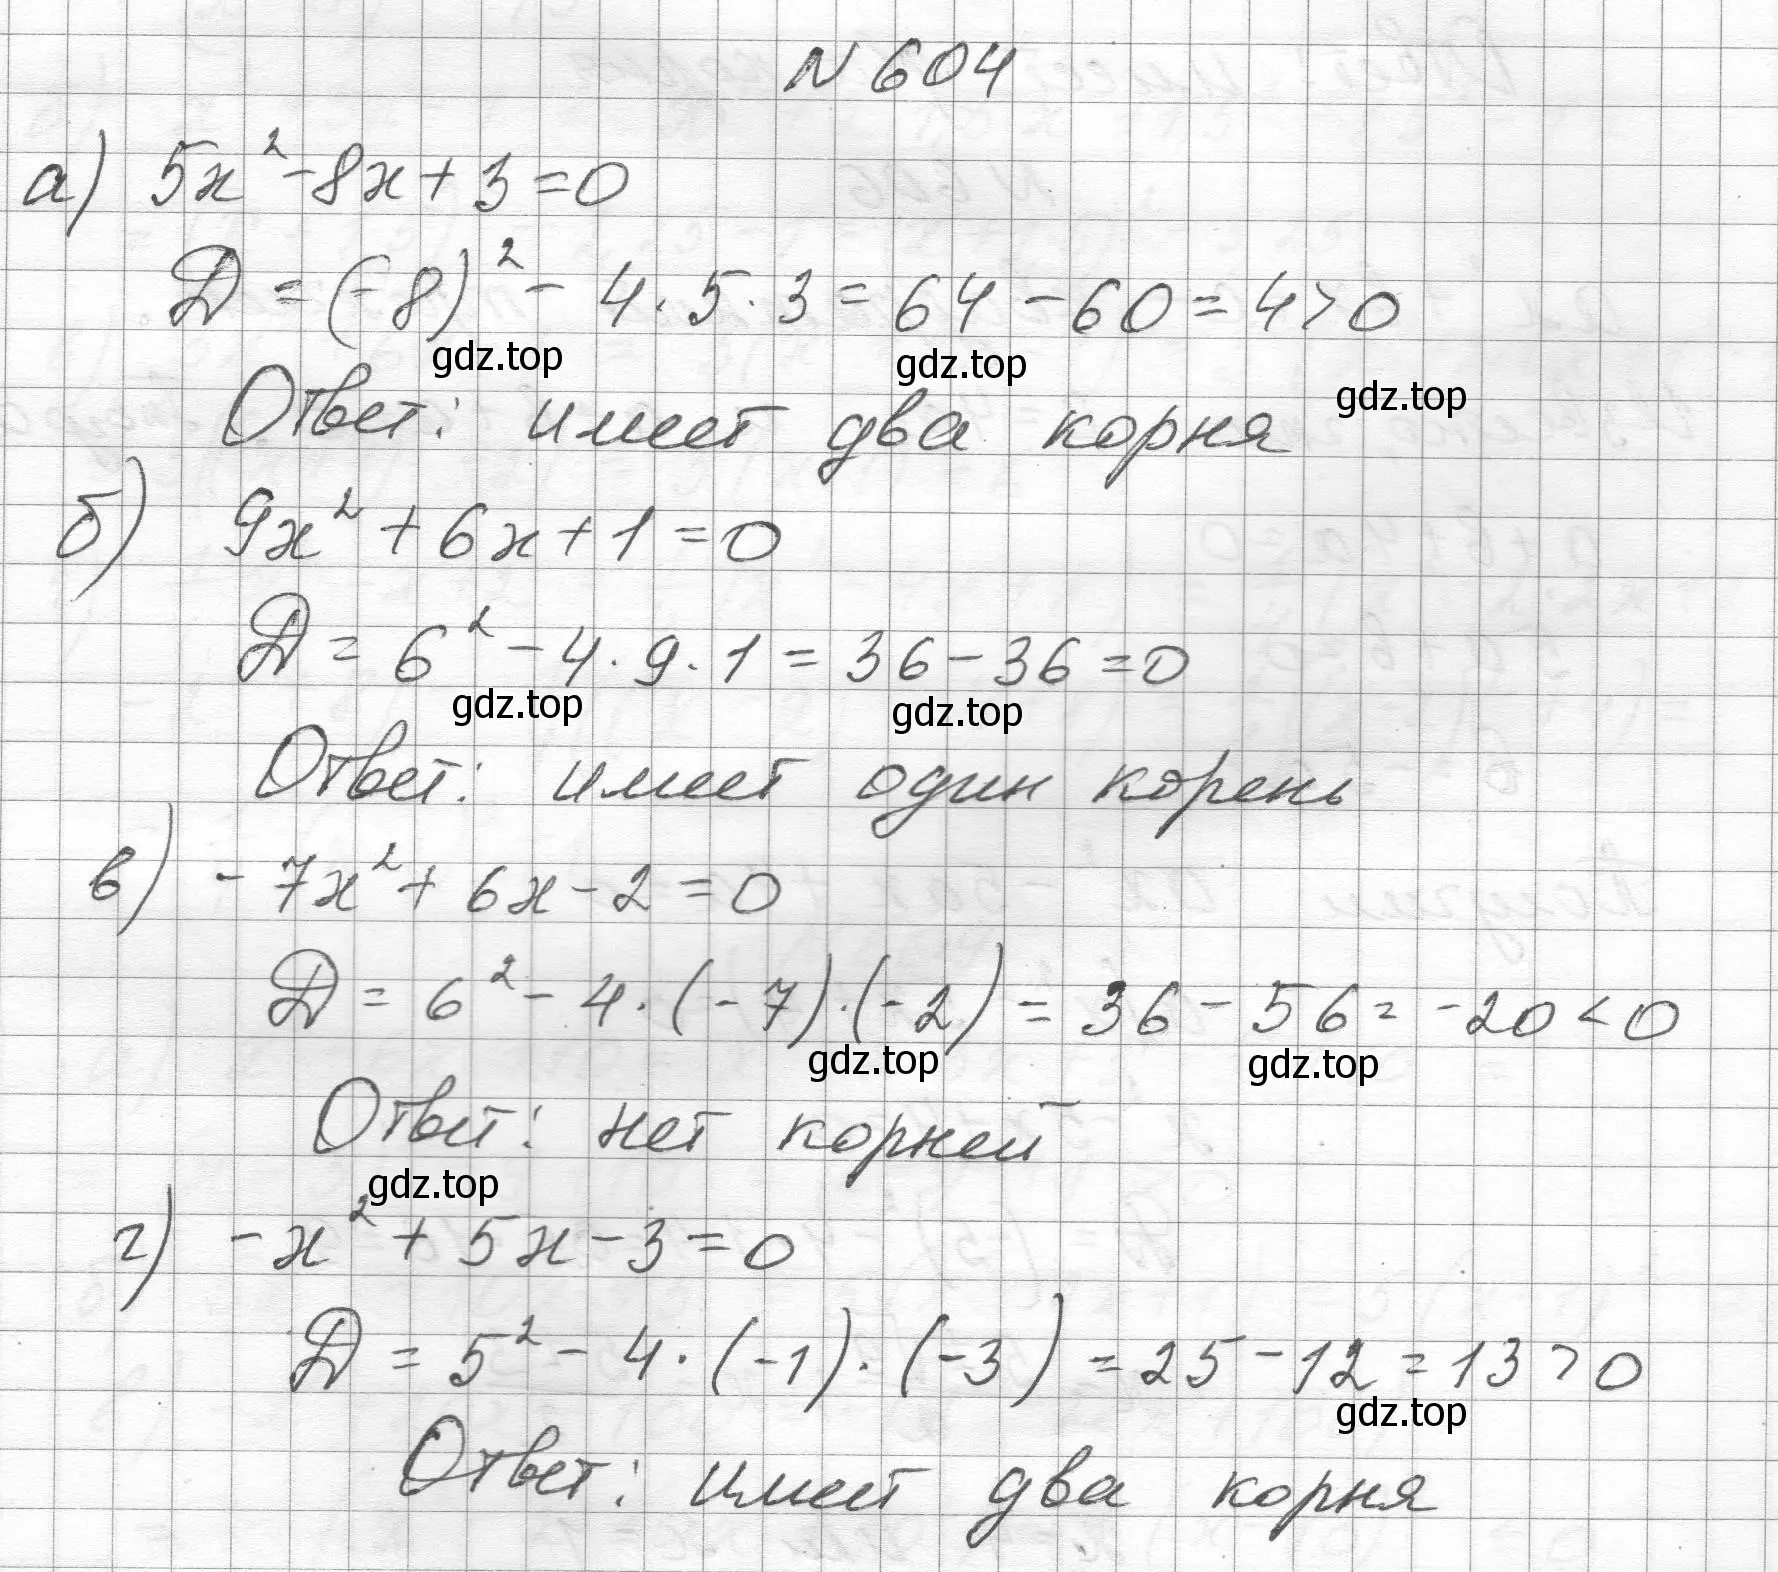 N 604
а) 5x² - 8x + 3 = 0
D = (-8)² - 4 · 5 · 3 = 64 - 60 = 4 > 0
gdz.top gdz.top gdz.top
Ответ: имеет два корня
б) 9x² + 6x + 1 = 0
D = 6² - 4 · 9 · 1 = 36 - 36 = 0
gdz.top gdz.top
Ответ: имеет один корень
в) -7x² + 6x - 2 = 0
D = 6² - 4 · (-7) · (-2) = 36 - 56 = -20 < 0
gdz.top gdz.top
Ответ: нет корней
gdz.top
г) -x² + 5x - 3 = 0
D = 5² - 4 · (-1) · (-3) = 25 - 12 = 13 > 0
gdz.top
Ответ: имеет два корня